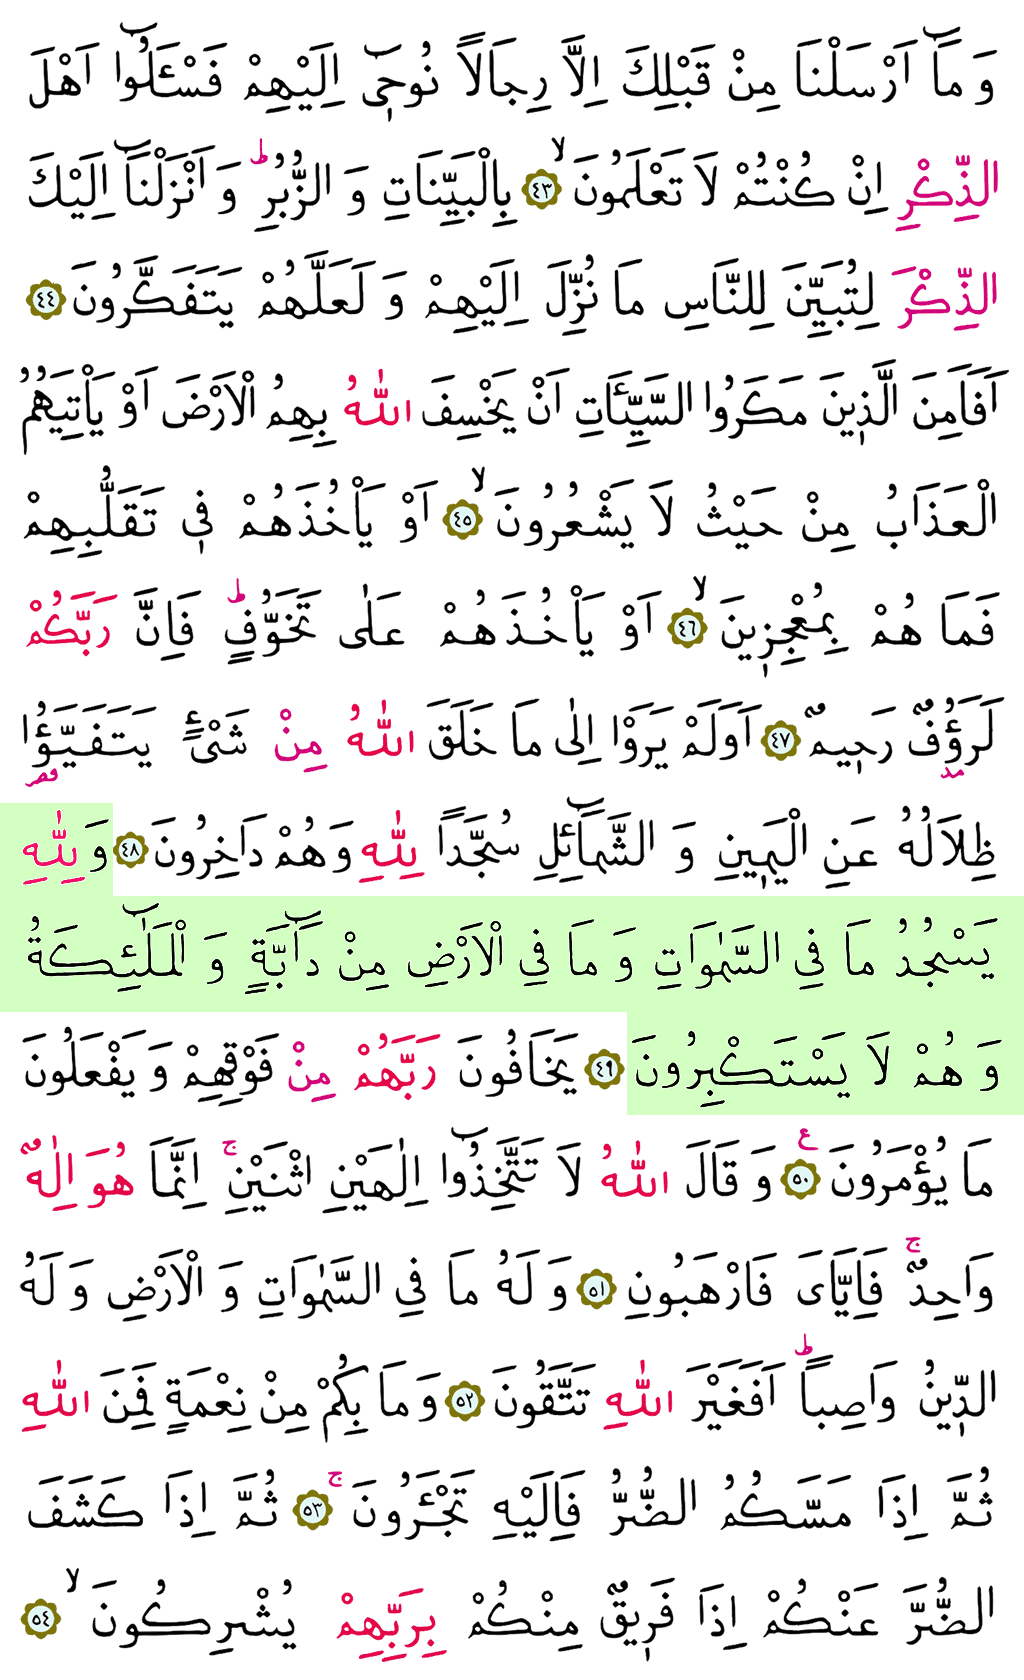 وَ مَٓا اَرْسَلْنَا مِنْ قَبْلِكَ اِلَّا رِجَالاً نُوحٖٓى اِلَيْهِمْ فَسْـَٔلُٓوا اَهْلَ
الذِّكْرِ اِنْ كُنْتُمْ لَا تَعْلَمُونَۙ ﴿٤٣﴾ بِالْبَيِّنَاتِ وَ الزُّبُرِؕ وَ اَنْزَلْنَٓا اِلَيْكَ
الذِّكْرَ لِتُبَيِّنَ لِلنَّاسِ مَا نُزِّلَ اِلَيْهِمْ وَ لَعَلَّهُمْ يَتَفَكَّرُونَ ﴿٤٤﴾
اَفَاَمِنَ الَّذٖينَ مَكَرُوا السَّيِّـَٔاتِ اَنْ يَخْسِفَ اللّٰهُ بِهِمُ الْاَرْضَ اَوْ يَاْتِيَهُمُ
الْعَذَابُ مِنْ حَيْثُ لَا يَشْعُرُونَۙ ﴿٤٥﴾ اَوْ يَاْخُذَهُمْ فٖى تَقَلُّبِهِمْ
فَمَا هُمْ بِمُعْجِزٖينَۙ ﴿٤٦﴾ اَوْ يَاْخُذَهُمْ عَلٰى تَخَوُّفٍؕ فَاِنَّ رَبَّكُمْ
لَرَؤُفٌ رَحٖيمٌ ﴿٤٧﴾ اَوَلَمْ يَرَوْا اِلٰى مَا خَلَقَ اللّٰهُ مِنْ شَىْءٍ يَتَفَيَّؤُا
مد قصر
ظِلَالُهُ عَنِ الْيَمٖينِ وَ الشَّمَٓائِلِ سُجَّداً لِلّٰهِ وَهُمْ دَاخِرُونَ ﴿٤٨﴾ وَ لِلّٰهِ
يَسْجُدُ مَا فِى السَّمٰوَاتِ وَ مَا فِى الْاَرْضِ مِنْ دَٓابَّةٍ وَ الْمَلٰٓئِكَةُ
وَ هُمْ لَا يَسْتَكْبِرُونَ ﴿٤٩﴾ يَخَافُونَ رَبَّهُمْ مِنْ فَوْقِهِمْ وَ يَفْعَلُونَ
مَا يُؤْمَرُونَ ع ﴿٥٠﴾ وَ قَالَ اللّٰهُ لَا تَتَّخِذُٓوا اِلٰهَيْنِ اثْنَيْنِۚ اِنَّمَا هُوَ اِلٰهٌ
وَاحِدٌۚ فَاِيَّاىَ فَارْهَبُونِ ﴿٥١﴾ وَ لَهُ مَا فِى السَّمٰوَاتِ وَ الْاَرْضِ وَ لَهُ
الدّٖينُ وَاصِباًؕ اَفَغَيْرَ اللّٰهِ تَتَّقُونَ ﴿٥٢﴾ وَ مَا بِكُمْ مِنْ نِعْمَةٍ فَمِنَ اللّٰهِ
ثُمَّ اِذَا مَسَّكُمُ الضُّرُّ فَاِلَيْهِ تَجْـَٔرُونَۚ ﴿٥٣﴾ ثُمَّ اِذَا كَشَفَ
الضُّرَّ عَنْكُمْ اِذَا فَرٖيقٌ مِنْكُمْ بِرَبِّهِمْ يُشْرِكُونَۙ ﴿٥٤﴾